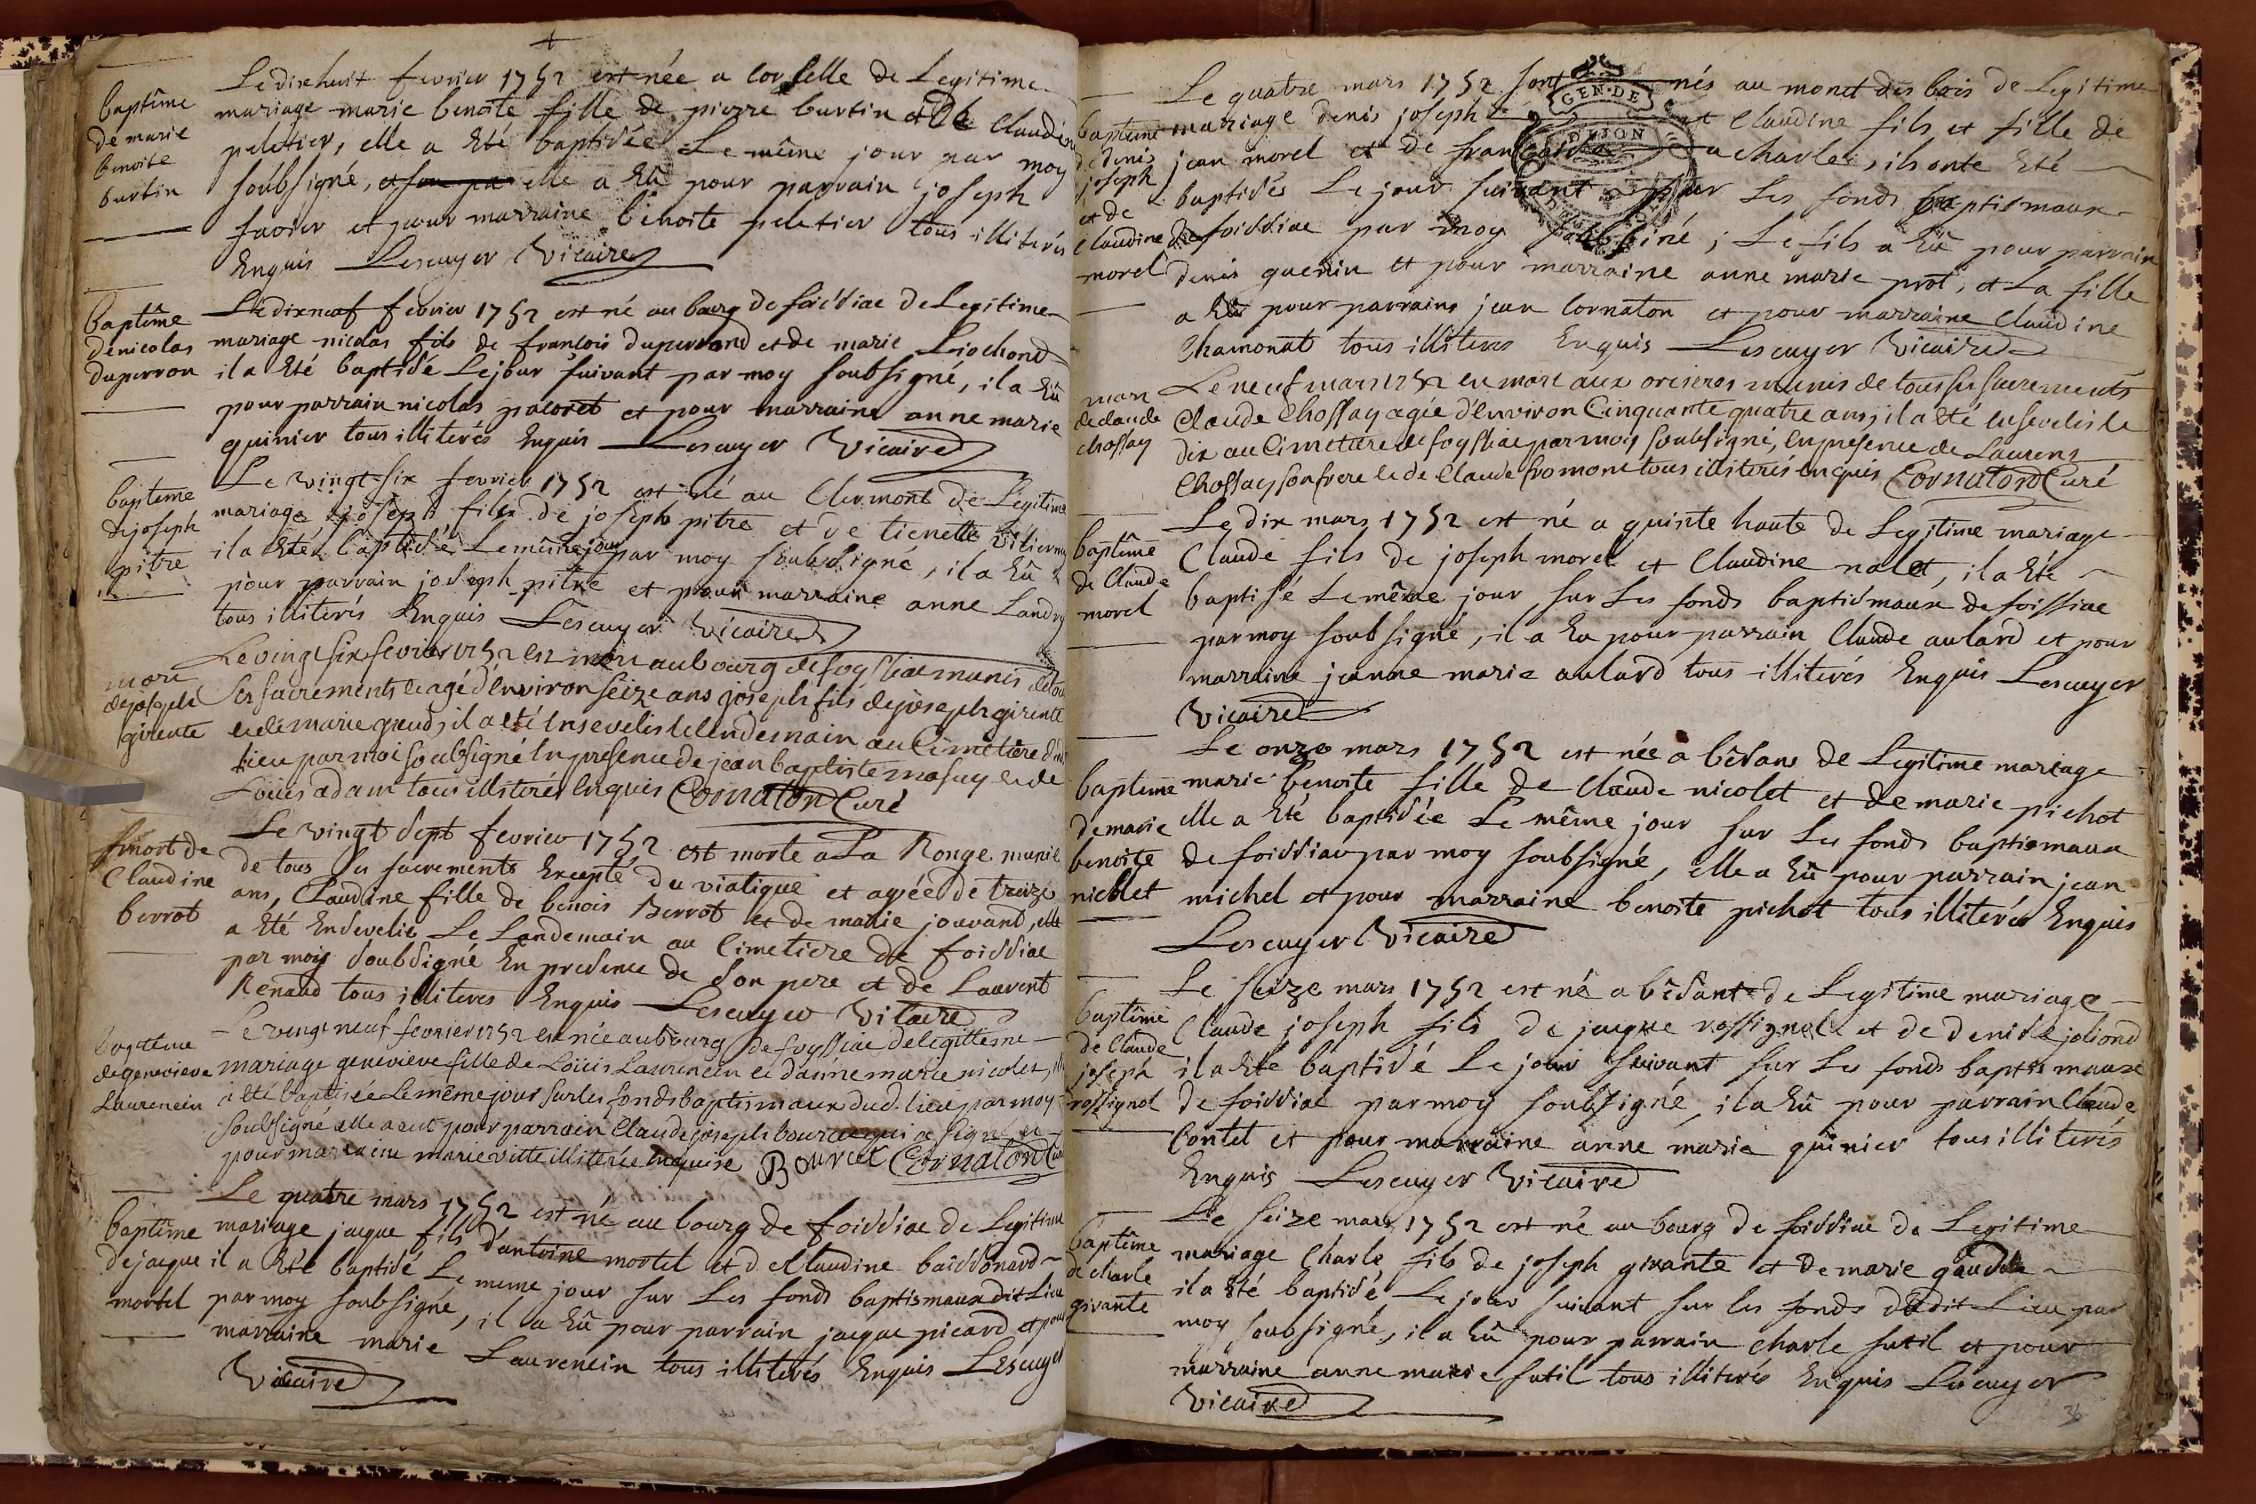 Le dix huit fevrier 1752 est née a corselle de Legitime
baptême
de marie
benoite
burtin
mariage marie benoite fille de pierre burtin et de Claudine
peletier, elle a été baptisée Le même jour par moy
soubsigné, elle a hû pour parrain joseph
favier et pour marraine benoite peletier tous illiterés
Enquis Lescuyer Vicaire
baptême
de nicolas
duperron
Le dixneuf fevrier 1752 est né au bourg de foissiac de Legitime
mariage nicolas fils de françois duperrond et de marie Liochond
il a Eté baptisé Le jour suivant par moy soubsigné, il a hû
pour parrain nicolas pacoret et pour marraine anne marie
quinier tous illiterés Enquis Lescuyer Vicaire
bapteme
de joseph
pitre
Le vingt-six fevrier 1752 est né au Clermont de Legitime
mariage joseph fils de joseph pitre et de tienette
il a Eté baptisé Le même jour par moy soubsigné, il a hû
pour parrain joseph pitre et pour marraine anne Landry
tous illiterés Enquis Lescuyer Vicaire
mort
de joseph
girente
Le vingt six fevrier 1752 est mort au bourg de foyssiac munis de tous
ses sacrements et agé d'environ seize ans joseph fils de joseph girente
et de marie gaud, il a été Ensevelis le lendemain au Cimetière
lieu par moi soubsigné En presence de jean baptiste et de
Loüis adam tous illiterés Enquis Cornaton Curé
mort de
Claudine
berrot
Le vingt sept fevrier 1752 est morte a La Ronge munie
de tous les sacrements Excepté du viatique et agée de treize
ans, Claudine fille de benois Berrot et de marie jouvand, elle
a Eté Ensevelie Le Landemain au Cimetiere de foissiac
par moy soubsigné En presence de son pere et de Laurent
Renaud tous illiteres Enquis Lescuyer Vicaire
baptême
de genevieve
Laurencin
Le vingt neuf fevrier 1752 est née au bourg de foyssiac de legitteme
mariage genevieve fille de Loüis Laurencin et d'anne marie nicolet, elle
a été baptisée Le même jour sur les fonds baptismaux dud. lieu par moy
soubsigné elle a eut pour parrain Claude joseph bourcet qui a signé et
pour marraine marie vitte illiterée Enquise Bourcet Cornaton Curé
baptême
de jacque
mortel
Le quatre mars 1752 est né au bourg de foissiac de Legitime
mariage jacque fils d'antoine mortel et de Claudine baissonard
il a Eté baptisé Le meme jour sur Les fonds baptismaux dit Lieu
par moy soubsigné, il a hû pour parrain jacque picard et pour
marraine marie Laurencin tous illiterés Enquis Lescuyer
Vicaire
baptême
de denis
joseph
et de
Claudine
morel
Le quatre mars 1752 sont nés au mont des bois de Legitime
mariage denis joseph et Claudine fils et fille de
jean morel et de françoise charles, ils onte Eté
baptisés Le jour suivant sur Les fonds baptismaux
de foissiac par moy soubsiné; Le fils a hû pour parrain
denis guerin et pour marraine anne marie prot, et La fille
a hû pour parrains jean Cornaton et pour marraine Claudine
Chamonat tous illiteres Enquis Lescuyer Vicaire
mort
de claude
chossay
Le neuf mars 1752 est mort aux munis de tous ses sacrements
Claude Chossay agée d'environ Cinquante quatre ans, il a été Ensevelis le
dix au Cimetiere de foyssiac par moy soubsigné, En presence de Laurens
Chossay son frere et de Claude fromont tous illiterés Enquis Cornaton Curé
baptême
de Claude
morel
Le dix mars 1752 est né a quinte haute de Legitime mariage
Claude fils de joseph morel et Claudine nalet, il a Eté
baptisé Le même jour sur Les fonds baptismaux de foissiac
par moy soubsigné, il a hu pour parrain Claude aulard et pour
marraine jeanne marie aulard tous illiterés Enquis Lescuyer
Vicaire
bapteme
de marie
benoite
nicolet
Le onze mars 1752 est née a bêsans de Legitime mariage
marie benoite fille de Claude nicolet et de marie pichot
elle a Eté baptisée Le même jour sur Les fonds baptismaux
de foissiac par moy soubsigné, elle a hû pour parrain jean
michel et pour marraine benoite pichot tous illiterés Enquis
Lescuyer Vicaire
baptême
de Claude
joseph
rossignol
Le seize mars 1752 est né a bêsant de Legitime mariage
Claude joseph fils de jacque rossignol et de denise joliond
il a Eté baptisé Le jour suivant sur Les fonds baptismaux
de foissiac par moy soubsigné, il a hû pour parrain Claude
Contet et pour marraine anne marie quinier tous illiterés
Enquis Lescuyer Vicaire
baptême
de charle
girante
Le seize mars 1752 est né au bourg de foissiac de Legitime
mariage Charle fils de joseph girante et de marie gaudde
il a Eté baptisé Le jour suivant sur les fonds dudit Lieu par
moy soubsigné, il a hû pour parrain charle sutil et pour
marraine anne marie sutil tous illiterés Enquis Lescuyer
Vicaire
GEN·DE
DIJON
36